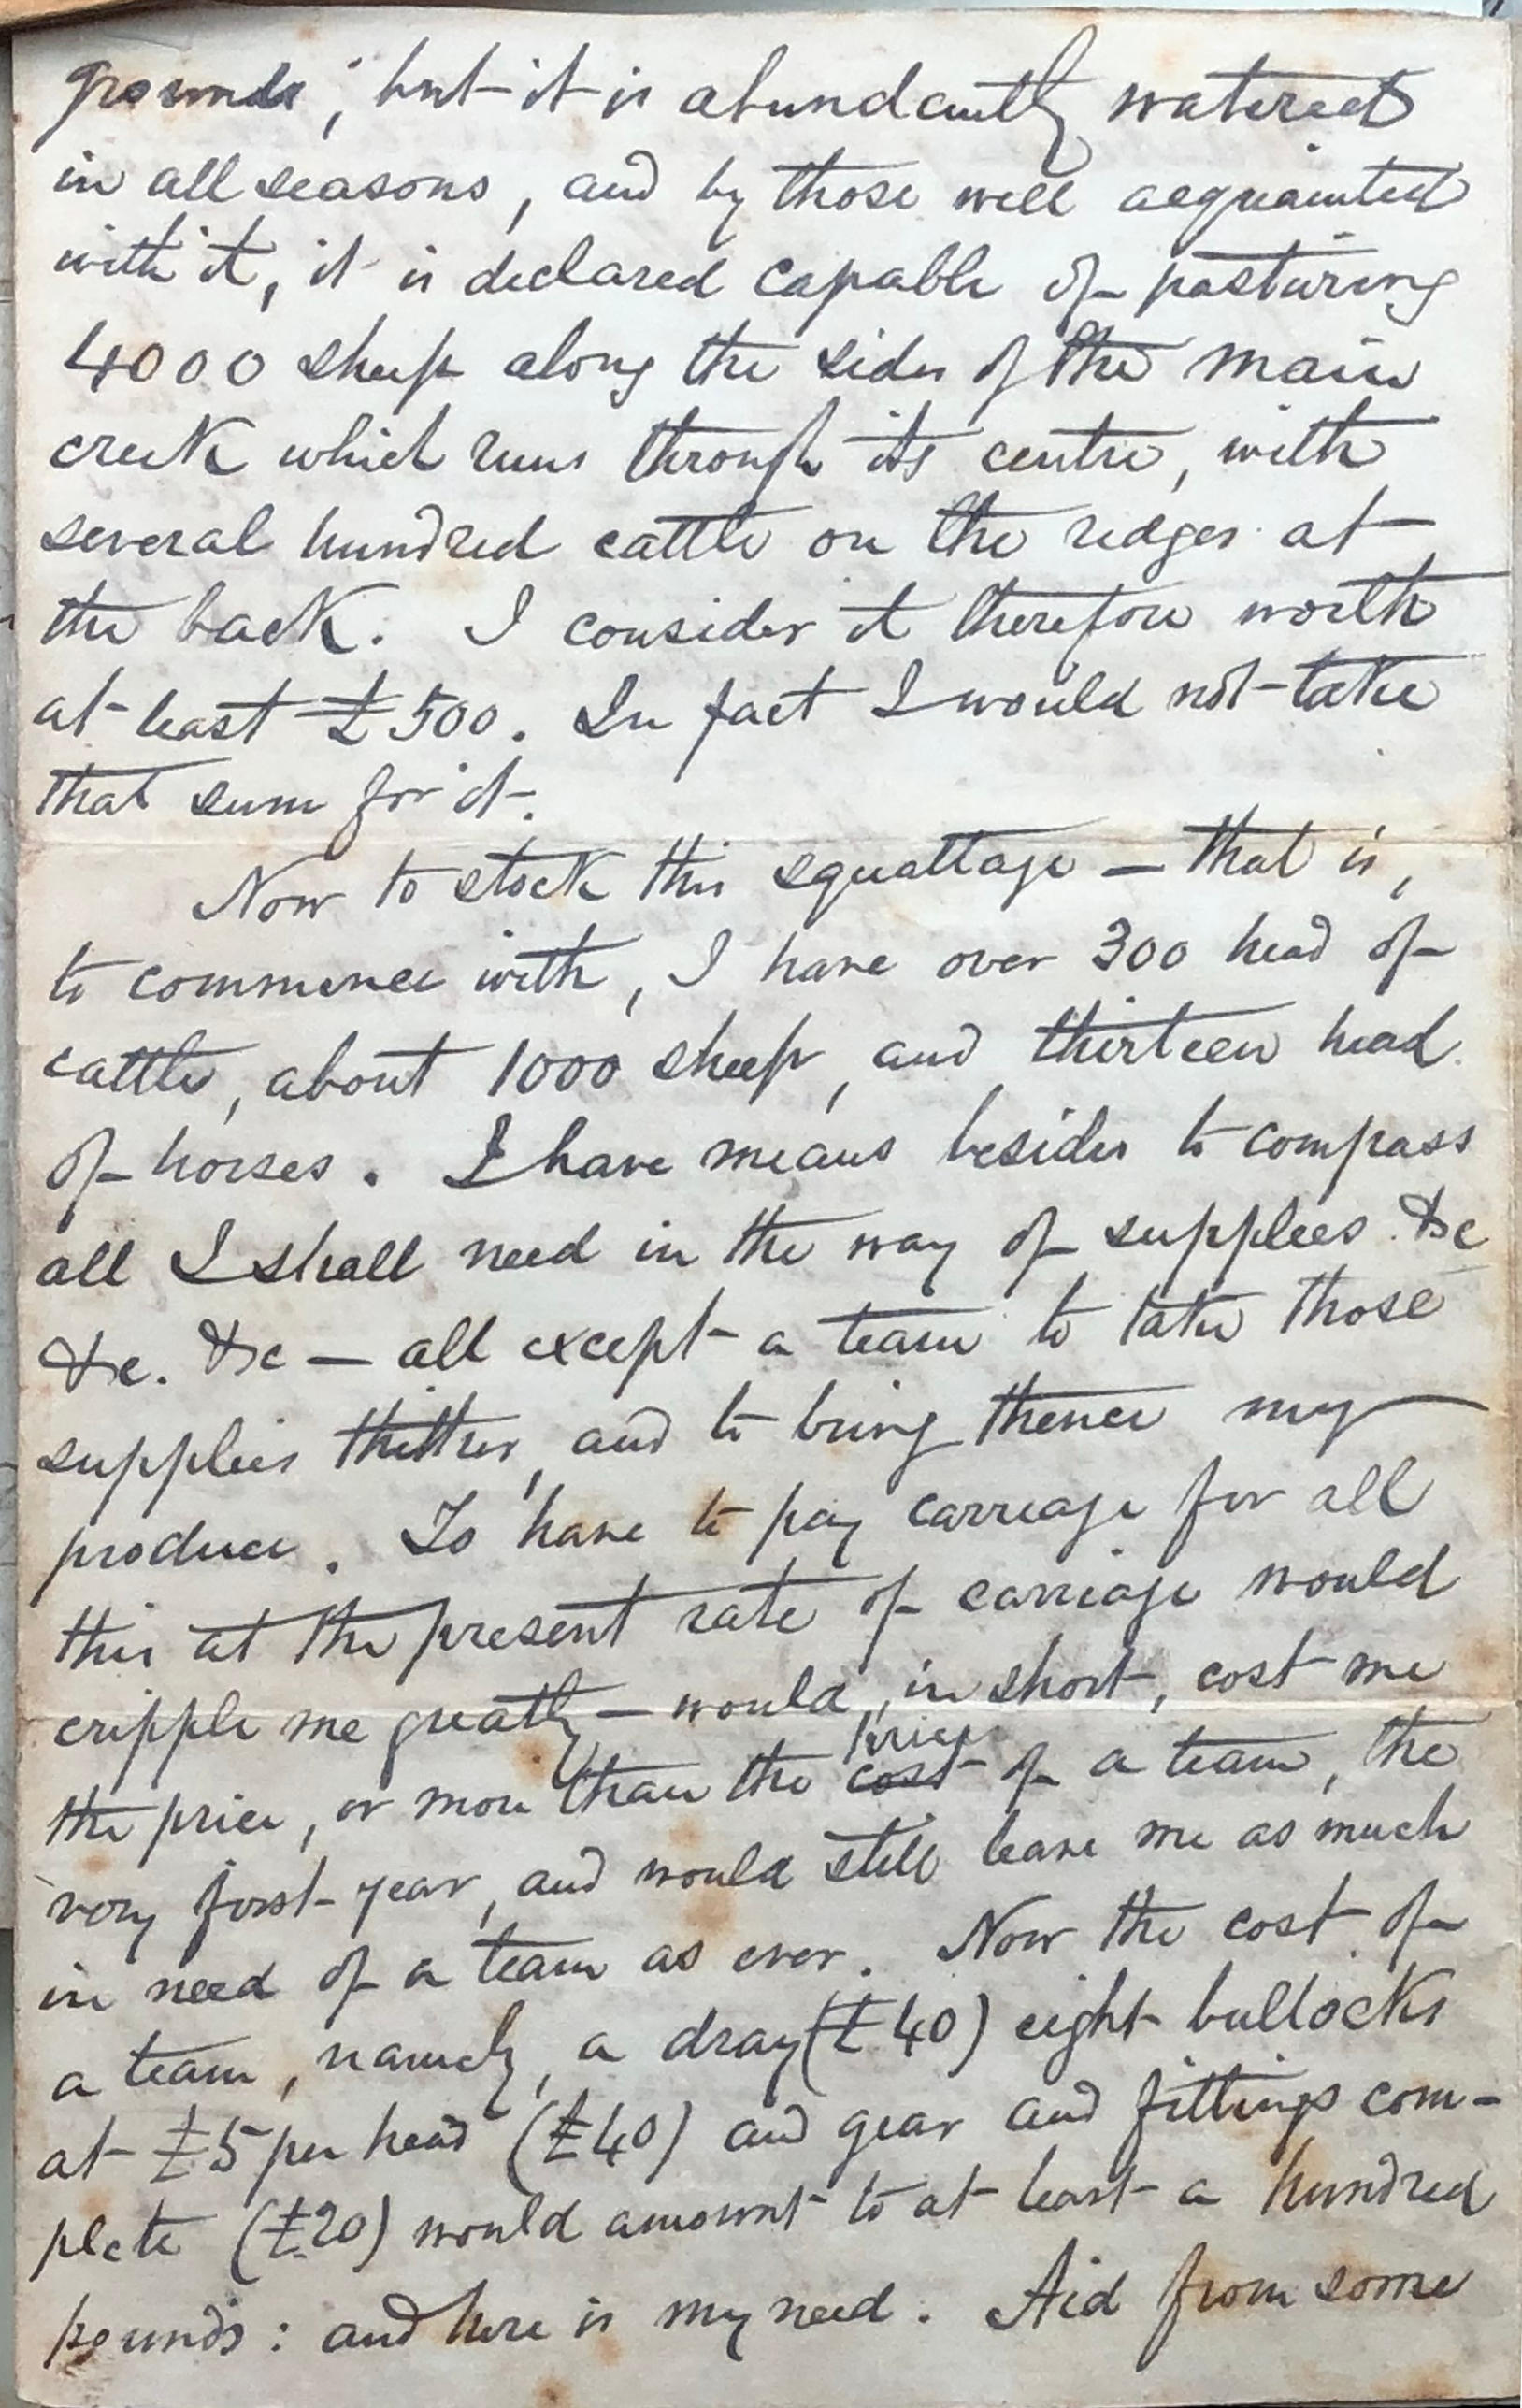 grounds; but it is abundantly watered
in all seasons, and by those well acquainted
with it, it is declared capable of pasturing
4000 sheep along the sides of the main
creek which runs through its centre, with
several hundred cattle on the ridges at
the back. I consider it therefore worth
at least £500. In fact I would not take
that sum for it.
Now to stock this squattage — that is,
to commence with, I have over 300 head of
cattle, about 1000 sheep, and thirteen head
of horses. I have means besides to compass
all I shall need in the way of supplies &c
&c. &c — all except a team to take those
supplies thither, and to bring thence my
produce. To have to pay carriage for all
this at the present rate of carriage would
cripple me greatly — would, in short, cost me
price
the price, or more than the cost of a team, the
very first year, and would still leave me as much
in need of a team as ever. Now the cost of
a team, namely, a dray (£40) eight bullocks
at £5 per head (£40) and gear and fittings com-
plete (£20) would amount to at least a hundred
pounds: and here is my need. Aid from some